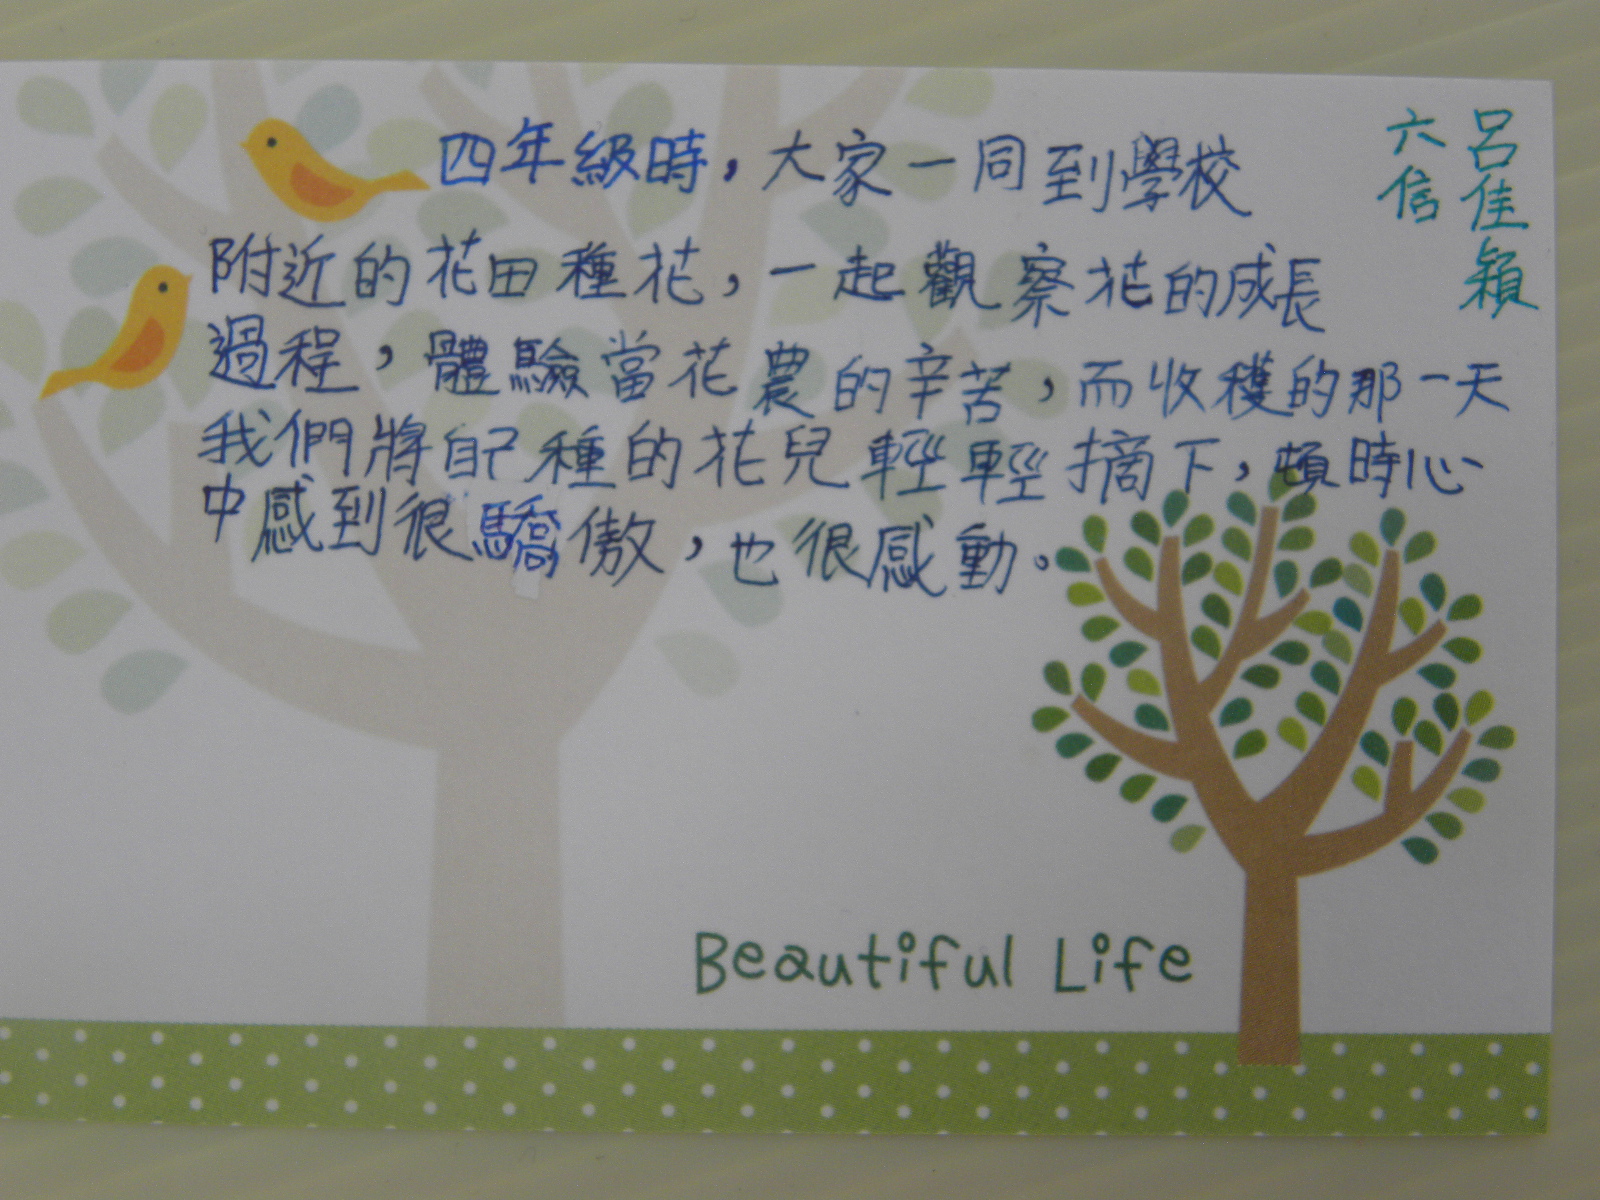 四年級時，大家一同到學校
附近的花田種花，一起觀察花的成長
過程，體驗當花農的辛苦，而收穫的那一天
我們將自己種的花兒輕輕摘下，頓時心
中感到很驕傲，也很感動。
呂佳穎
六信
Beautiful Life